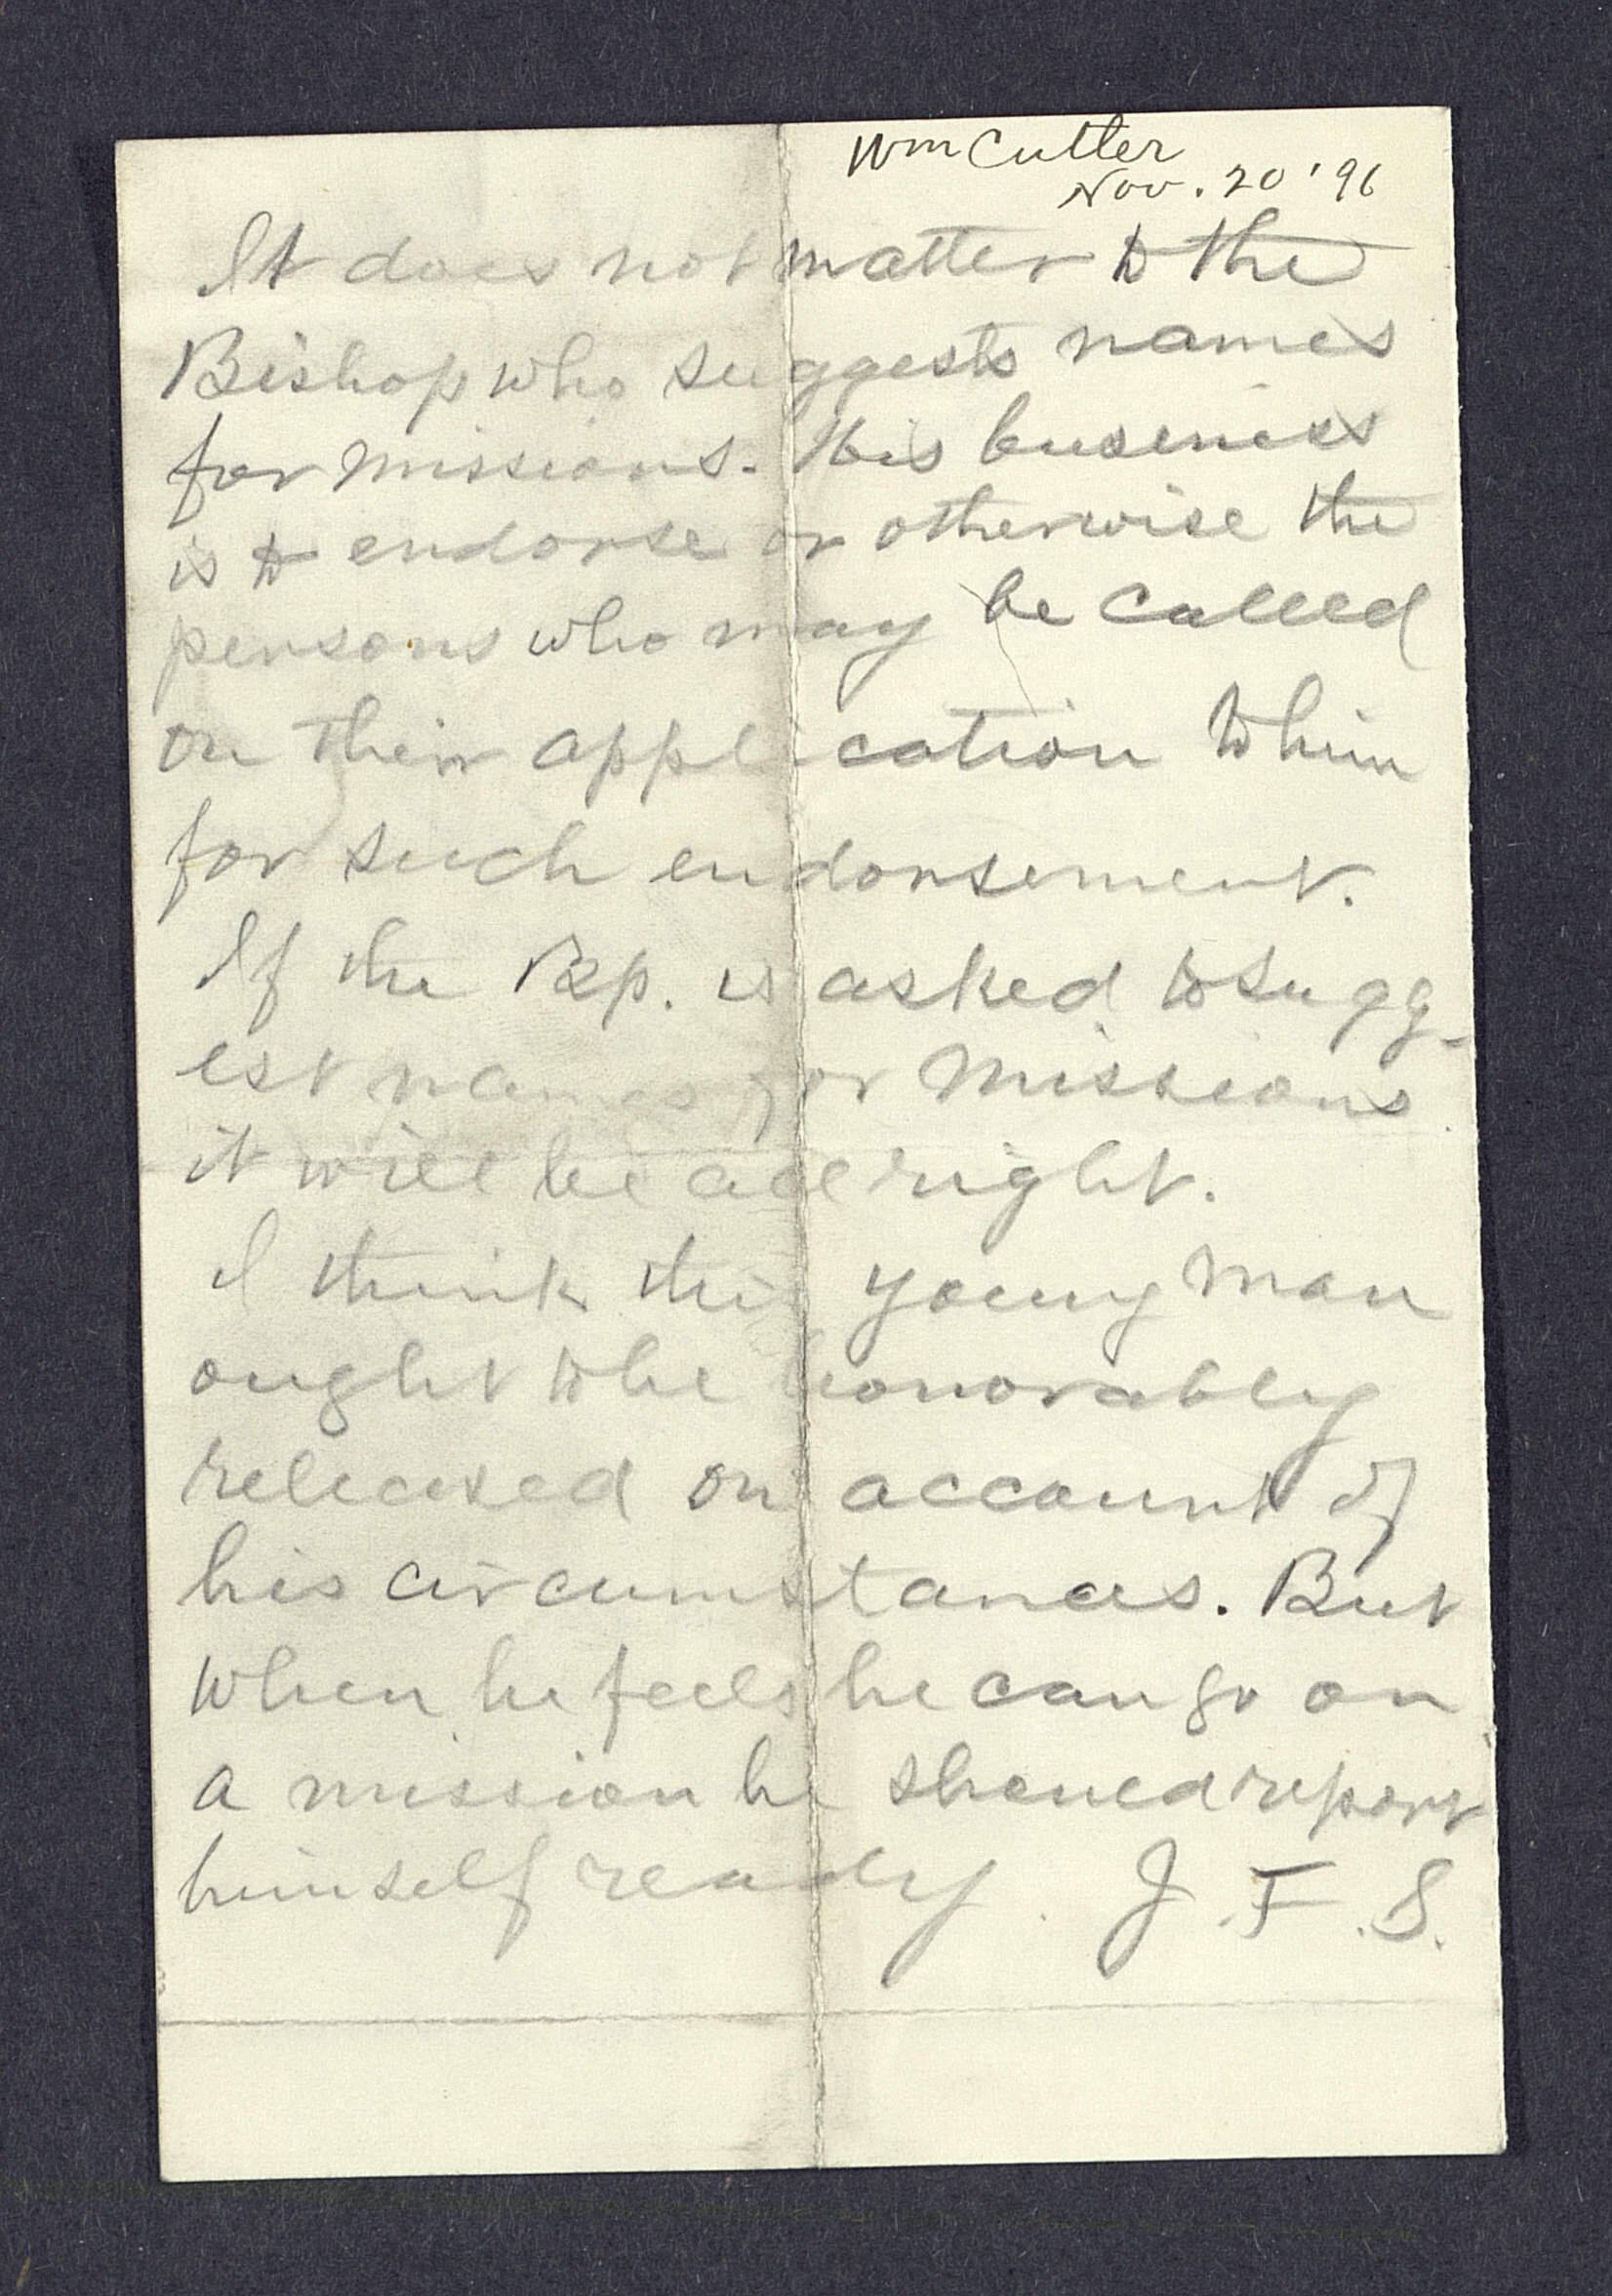 Wm Cutler
Nov. 20 '96
It does not matter to the
Bishop who suggests names
for missions. His business
is to endorse or otherwise the
persons who may be called
on their application to him
for such endorsement.
If the Bp. is asked to sugg-
est names for missions
it will be all right.
I think this young man
ought to be honorably
released on account of
his circumstances. But
when he feels he can go on
a mission he should report
himself ready. J. F. S.